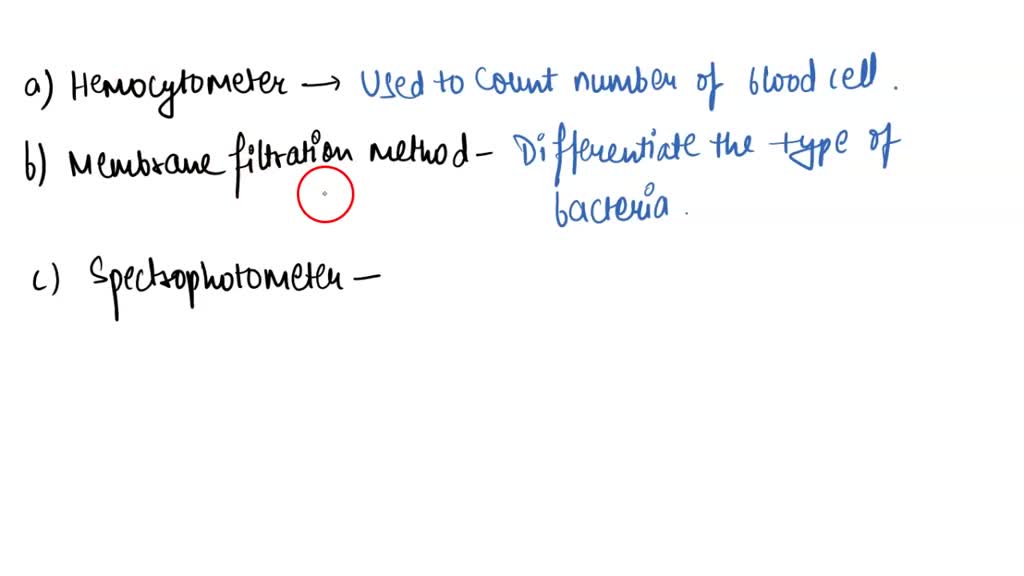 a) Hemocytometer → Used to count number of blood cell.
b) Membrane filtration method - Differentiate the type of
bacteria.
c) Spectrophotometer -